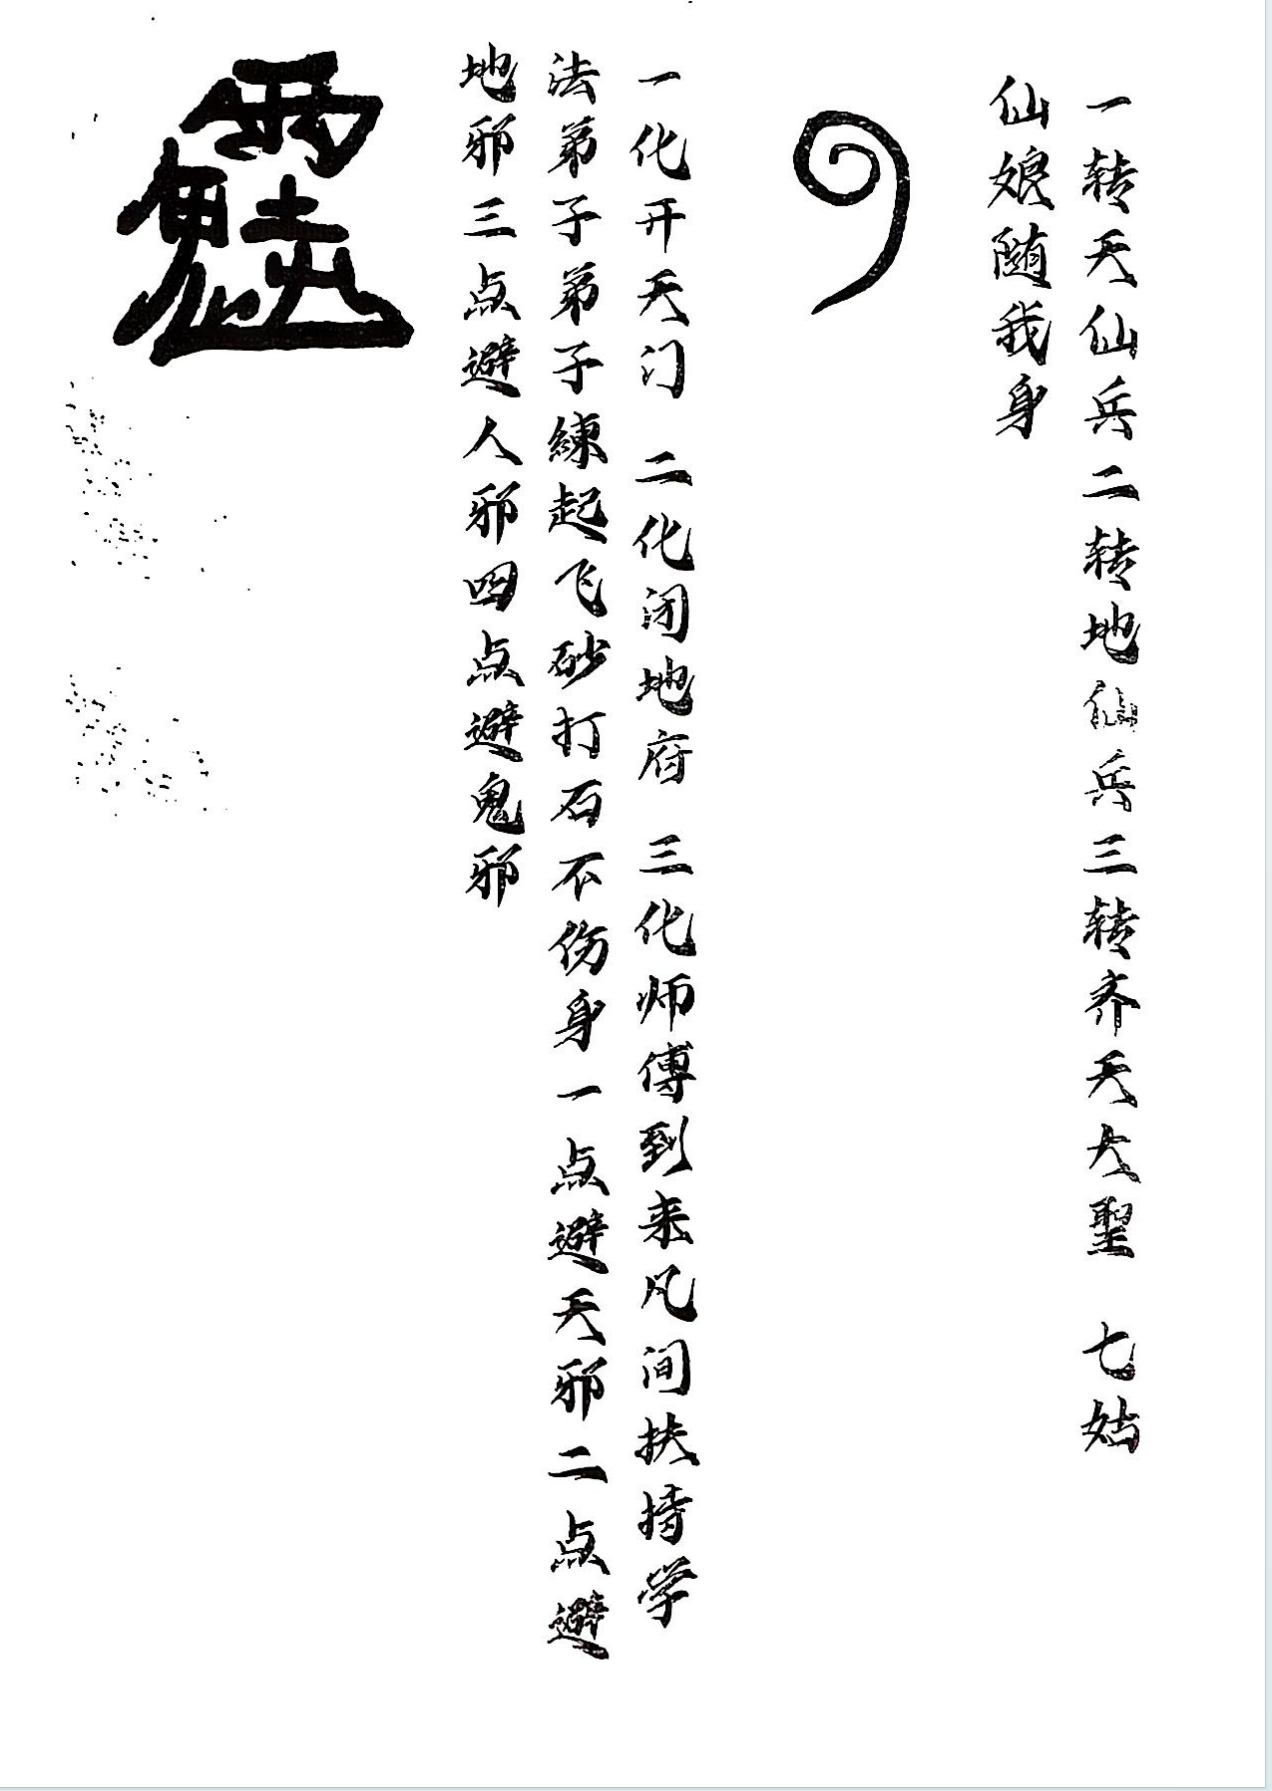 一转天仙兵二转地仙兵三转齐天大聖 七姑
仙娘随我身
一化开天门 二化闭地府 三化师傅到来凡间扶持学
法弟子弟子練起飞砂打石不伤身一点避天邪二点避
地邪三点避人邪四点避鬼邪